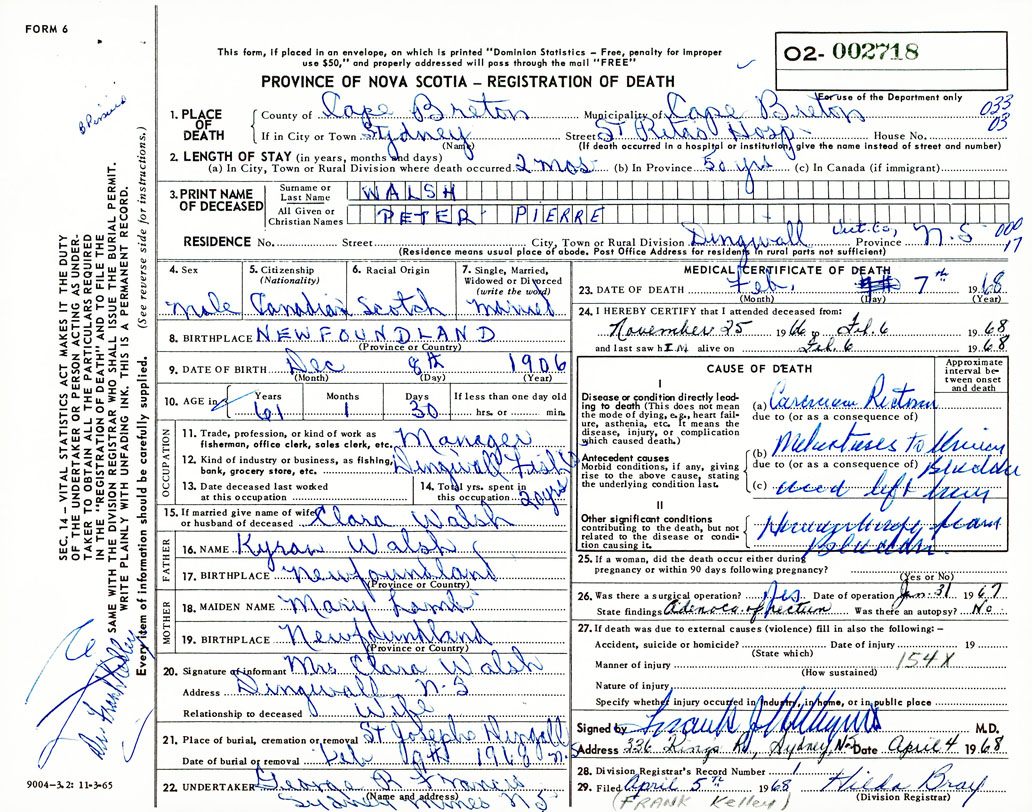 FORM 6
This form, if placed in an envelope, on which is printed "Dominion Statistics – Free, penalty for improper
use $50," and properly addressed will pass through the mail "FREE"
O2- 002718
PROVINCE OF NOVA SCOTIA – REGISTRATION OF DEATH
For use of the Department only
033
03
1. PLACE OF DEATH
County of Cape Breton Municipality of Cape Breton
If in City or Town Sydney Street St Ritas Hosp. House No.
(Name) (If death occurred in a hospital or institution, give the name instead of street and number)
2. LENGTH OF STAY (in years, months and days)
(a) In City, Town or Rural Division where death occurred 2 mos (b) In Province 50 yrs (c) In Canada (if immigrant)
3. PRINT NAME OF DECEASED
Surname or Last Name WALSH
All Given or Christian Names PETER PIERRE
RESIDENCE No. Street City, Town or Rural Division Dingwall Vict. Co, Province N.S
000
17
(Residence means usual place of abode. Post Office Address for residents in rural parts not sufficient)
4. Sex
male
5. Citizenship
(Nationality)
Canadian
6. Racial Origin
Scotch
7. Single, Married,
Widowed or Divorced
(write the word)
married
8. BIRTHPLACE NEWFOUNDLAND
(Province or Country)
9. DATE OF BIRTH Dec 8th 1906
(Month) (Day) (Year)
10. AGE in Years Months Days If less than one day old
61 1 30 hrs. or min.
OCCUPATION
11. Trade, profession, or kind of work as
fisherman, office clerk, sales clerk, etc. Manager
12. Kind of industry or business, as fishing,
bank, grocery store, etc. Dingwall
13. Date deceased last worked
at this occupation
14. Total yrs. spent in
this occupation 20yrs
15. If married give name of wife
or husband of deceased Clara Walsh
FATHER
16. NAME Kyran Walsh
17. BIRTHPLACE Newfoundland
(Province or Country)
MOTHER
18. MAIDEN NAME Mary Lamb
19. BIRTHPLACE Newfoundland
(Province or Country)
20. Signature of informant Mrs Clara Walsh
Address Dingwall N-S
Relationship to deceased Wife
21. Place of burial, cremation or removal St Josephs
Date of burial or removal Feb 1968
22. UNDERTAKER George R Francis
(Name and address)
Sydney Mines N.S
MEDICAL CERTIFICATE OF DEATH
23. DATE OF DEATH Feb. 7th 1968
(Month) (Day) (Year)
24. I HEREBY CERTIFY that I attended deceased from:
November 25 1966 to Feb. 6 1968
and last saw hIM alive on Feb. 6 1968
CAUSE OF DEATH
Approximate interval between onset and death
I
Disease or condition directly leading to death (This does not mean the mode of dying, e.g., heart failure, asthenia, etc. It means the disease, injury, or complication which caused death.)
(a) Carcinoma Rectum
due to (or as a consequence of)
Antecedent causes
Morbid conditions, if any, giving rise to the above cause, stating the underlying condition last.
(b) Metastases to
due to (or as a consequence of) Bladder
(c) and left
II
Other significant conditions
contributing to the death, but not related to the disease or condition causing it.
from
Bladder.
25. If a woman, did the death occur either during
pregnancy or within 90 days following pregnancy?
(Yes or No)
26. Was there a surgical operation? Yes Date of operation Jan. 31 1967
State findings Adenoca of rectum Was there an autopsy? No.
27. If death was due to external causes (violence) fill in also the following: –
Accident, suicide or homicide? Date of injury 19
(State which)
154X
Manner of injury
(How sustained)
Nature of injury
Specify whether injury occurred in industry, in home, or in public place
Signed by M.D.
Address 336 Kings Rd, Sydney N.S Date April 4 1968
28. Division Registrar's Record Number 1
29. Filed April 5th 1968 Hilda Bray
(Division Registrar)
(FRANK Kelley)
SEC. 14 – VITAL STATISTICS ACT MAKES IT THE DUTY
OF THE UNDERTAKER OR PERSON ACTING AS UNDER-
TAKER TO OBTAIN ALL THE PARTICULARS REQUIRED
IN THE "REGISTRATION OF DEATH" AND TO FILE THE
SAME WITH THE DIVISION REGISTRAR WHO SHALL ISSUE THE BURIAL PERMIT.
WRITE PLAINLY WITH UNFADING INK. THIS IS A PERMANENT RECORD.
Every item of information should be carefully supplied. (See reverse side for instructions.)
9004-3.2: 11-3-65